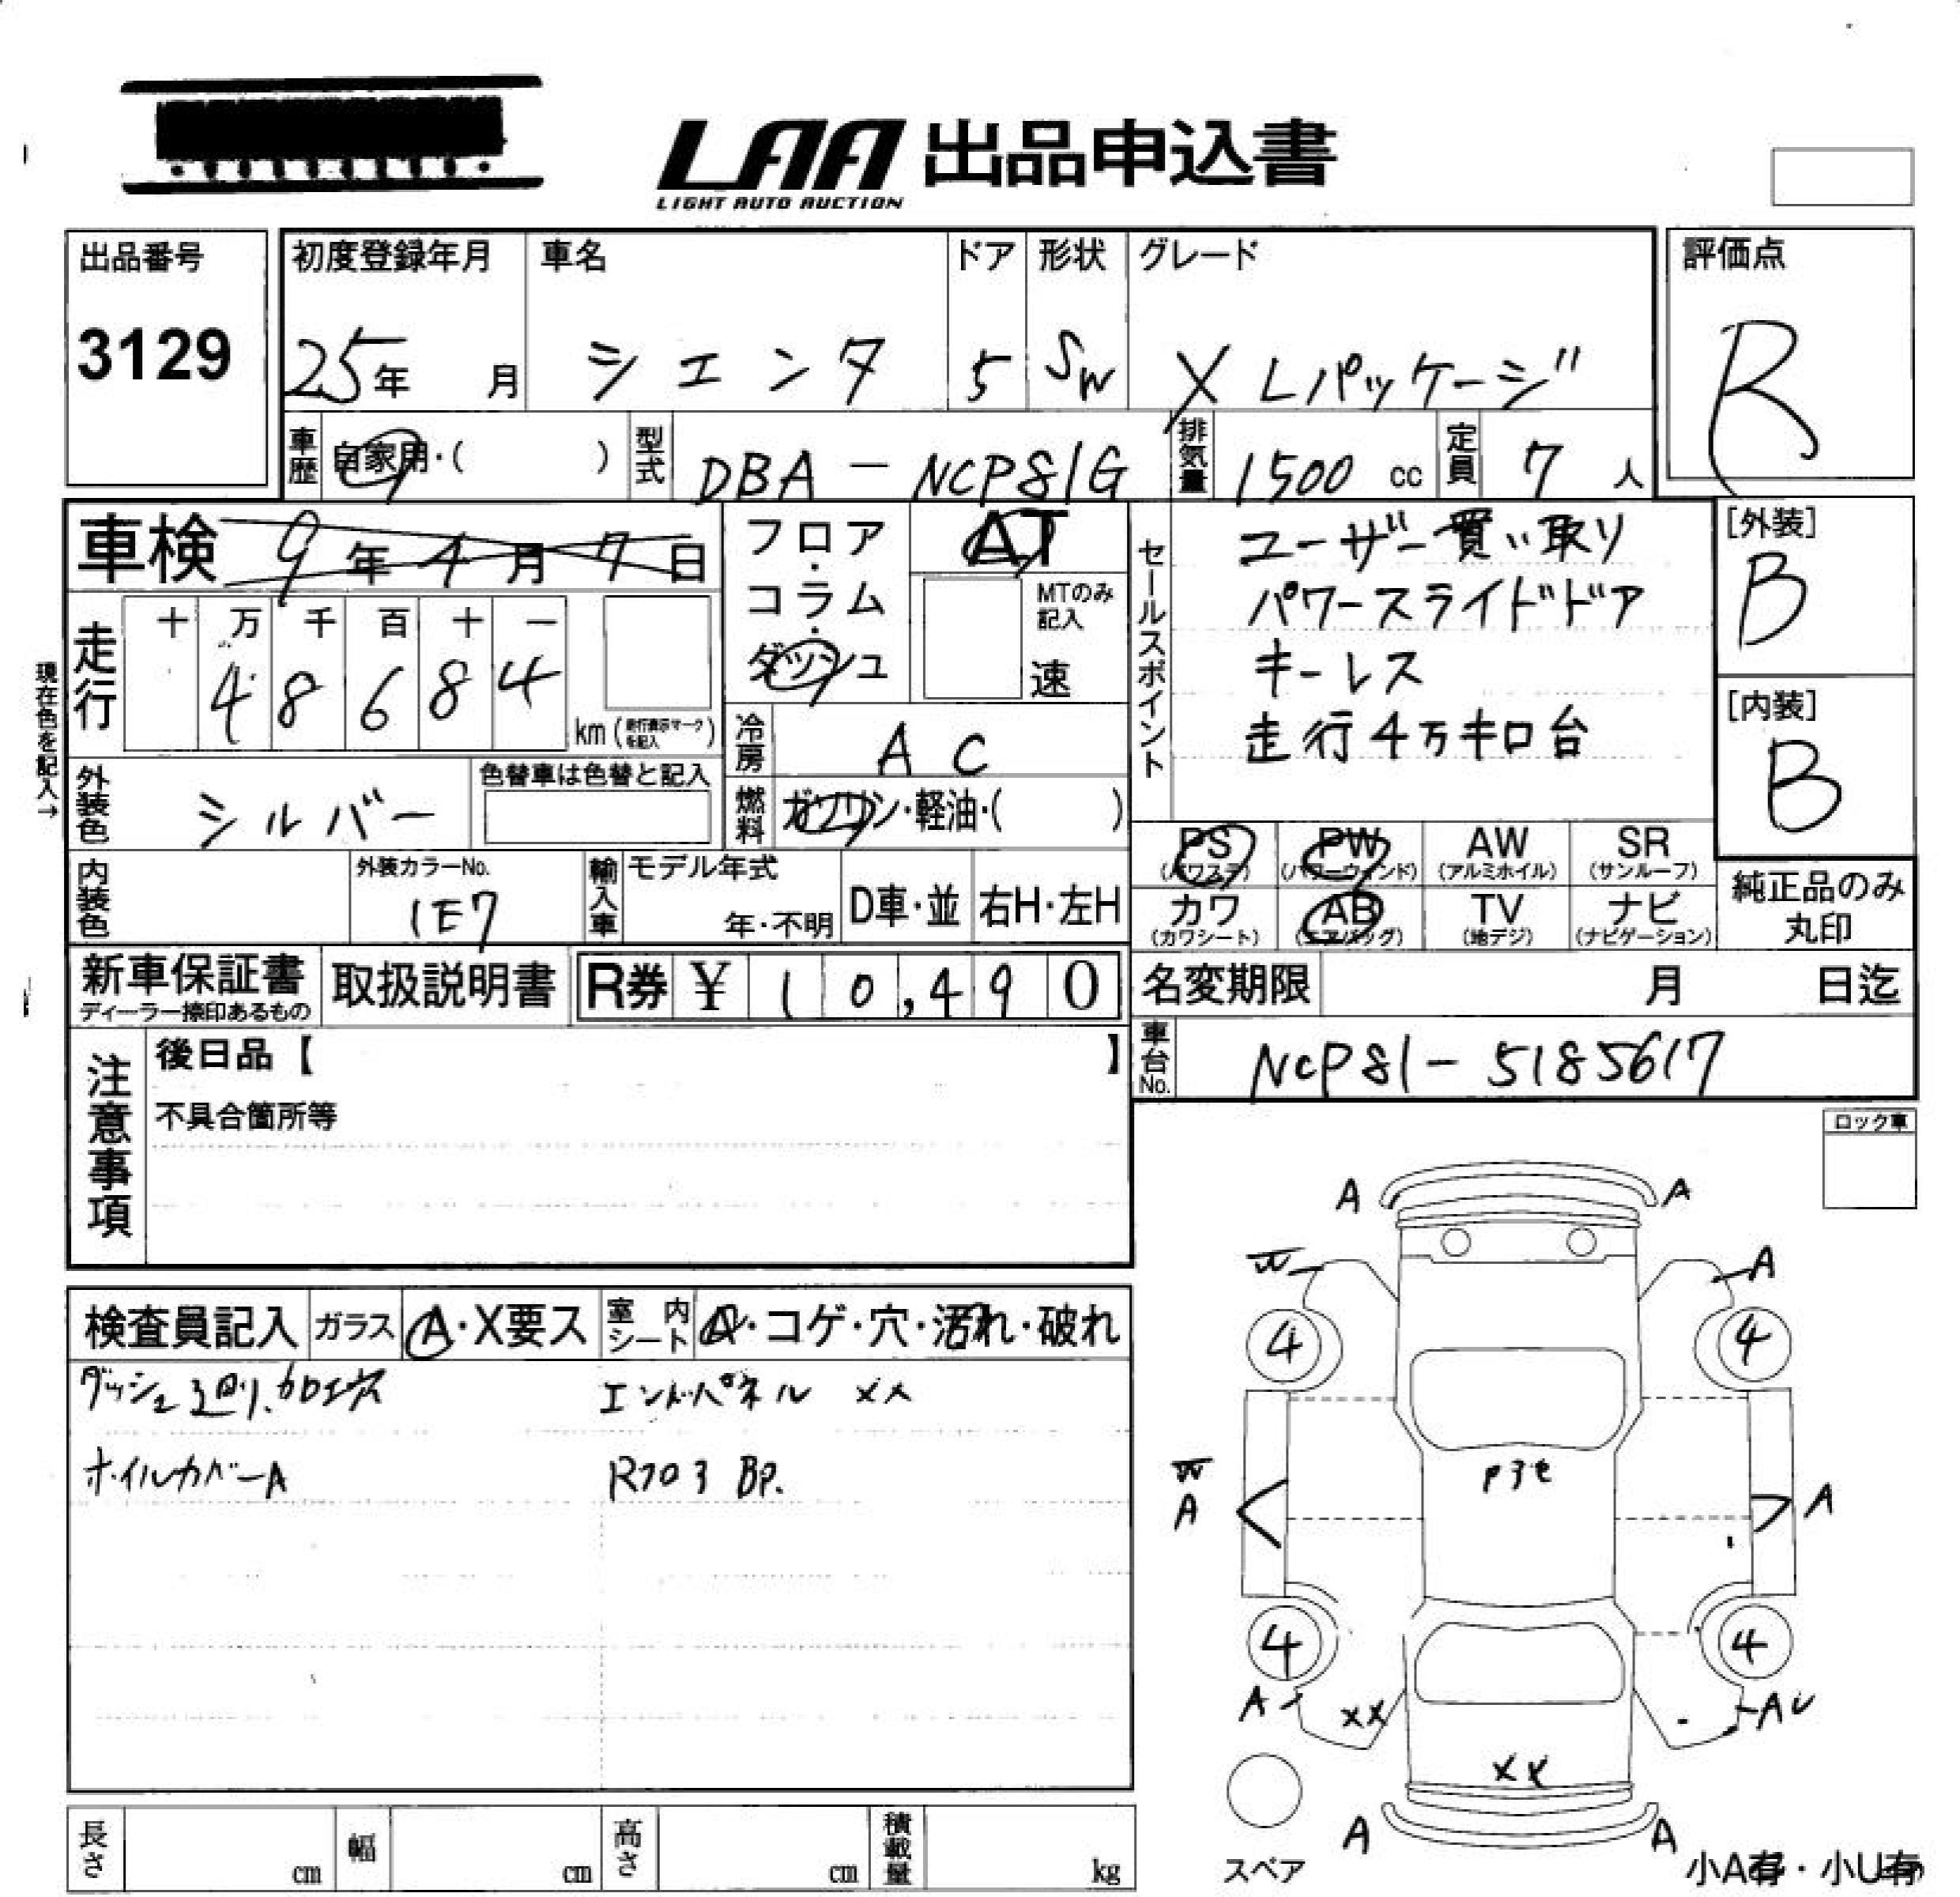 LAA 出品申込書
LIGHT AUTO AUCTION
出品番号
3129
初度登録年月 車名 ドア 形状 グレード
25年 月 シエンタ 5 SW X Lパッケージ
評価点
R
車歴 自家用・( ) 型式 DBA-NCP81G 排気量 1500 cc 定員 7 人
車検 9年4月7日
フロア・コラム・ダッシュ
AT
MTのみ記入
速
セールスポイント
ユーザー買い取り
パワースライドドア
キーレス
走行4万キロ台
[外装]
B
[内装]
B
現在色を記入→
走行 十 万 千 百 十 一
4 8 6 8 4
km (走行表示マークを記入)
冷房 AC
外装色 シルバー 色替車は色替と記入
燃料 ガソリン・軽油・( )
PS (パワステ) PW (パワーウィンド) AW (アルミホイル) SR (サンルーフ)
カワ (カワシート) AB (エアバッグ) TV (地デジ) ナビ (ナビゲーション)
純正品のみ丸印
内装色 外装カラーNo. 1E7 輸入車 モデル年式 年・不明 D車・並 右H・左H
新車保証書 取扱説明書 R券 ¥ 10,490
ディーラー捺印あるもの
名変期限 月 日迄
車台No. NCP81-5185617
注意事項
後日品【 】
不具合箇所等
ロック車
検査員記入 ガラス A・X要ス 室内シート A・コゲ・穴・汚れ・破れ
エンドパネル XX
ホイルカバーA
BP.
A A
W A
4 4
W
A A
4 4
A XX AU
XX
A A
スペア
小A有・小U有
長さ cm 幅 cm 高さ cm 積載量 kg